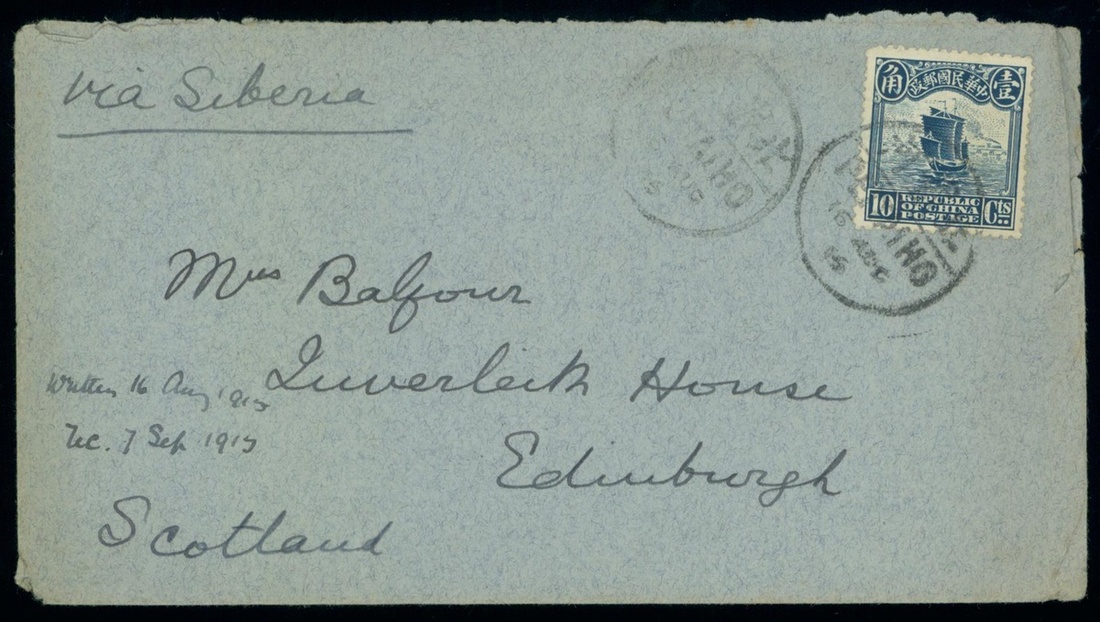 via Siberia
角 政郵國民華中 壹
10 REPUBLIC OF CHINA POSTAGE Cts
16 AUG 15
Mrs Balfour
Inverleith House
Edinburgh
Scotland
Written 16 Aug 1915
Rec. 7 Sep 1915